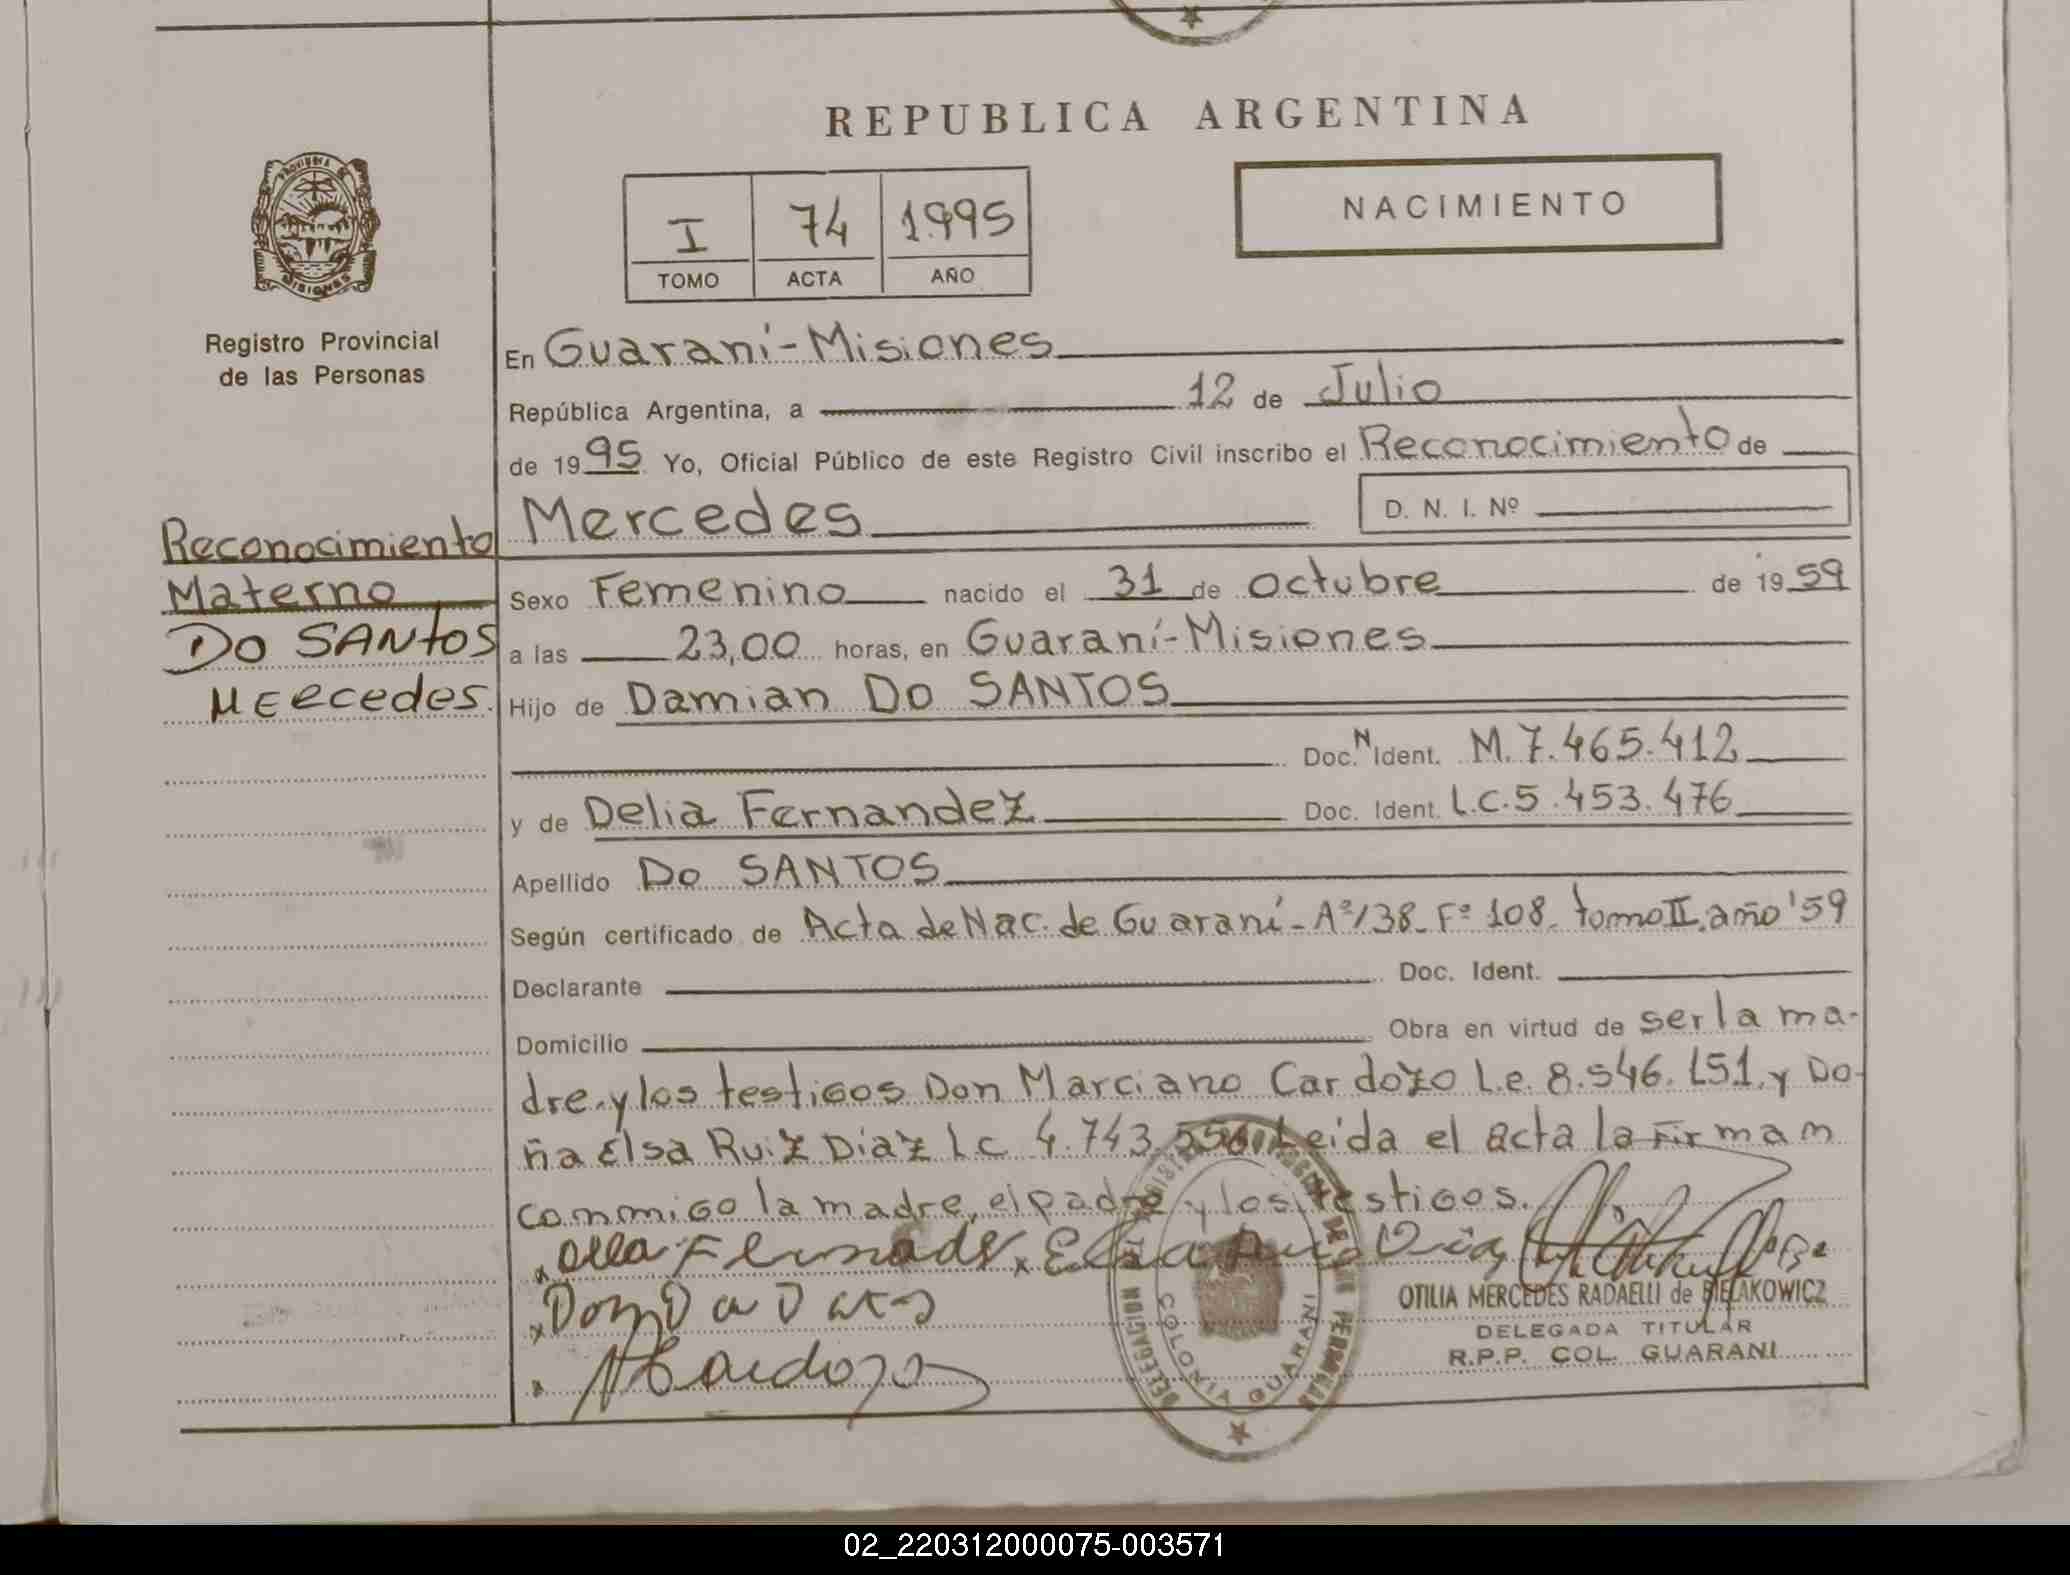 REPUBLICA ARGENTINA
PROVINCIA DE
MISIONES
Registro Provincial
de las Personas
I 74 1.995
TOMO ACTA AÑO
NACIMIENTO
En Guaraní-Misiones
República Argentina, a 12 de Julio
de 1995 Yo, Oficial Público de este Registro Civil inscribo el Reconocimiento de
Mercedes D. N. I. Nº
Reconocimiento
Materno
Do SANtOS
Mercedes.
Sexo Femenino nacido el 31 de octubre de 1959
a las 23,00 horas, en Guaraní-Misiones
Hijo de Damian Do SANTOS
Doc. N Ident. M. 7.465.412
y de Delia Fernandez Doc. Ident. L.C. 5.453.476
Apellido Do SANTOS
Según certificado de Acta de Nac. de Guaraní-Aº138-Fº108-tomo II.año'59
Declarante Doc. Ident.
Domicilio Obra en virtud de ser la ma-
dre y los testigos Don Marciano Cardozo L.e. 8.546.151.y Do-
ña Elsa Ruiz Diaz l.c 4.743. Leida el acta la firman
conmigo la madre, el padre y los testigos.
OTILIA MERCEDES RADAELLI de BIELAKOWICZ
DELEGADA TITULAR
R.P.P. COL. GUARANI
DELEGACION
COLONIA GUARANI
02_220312000075-003571